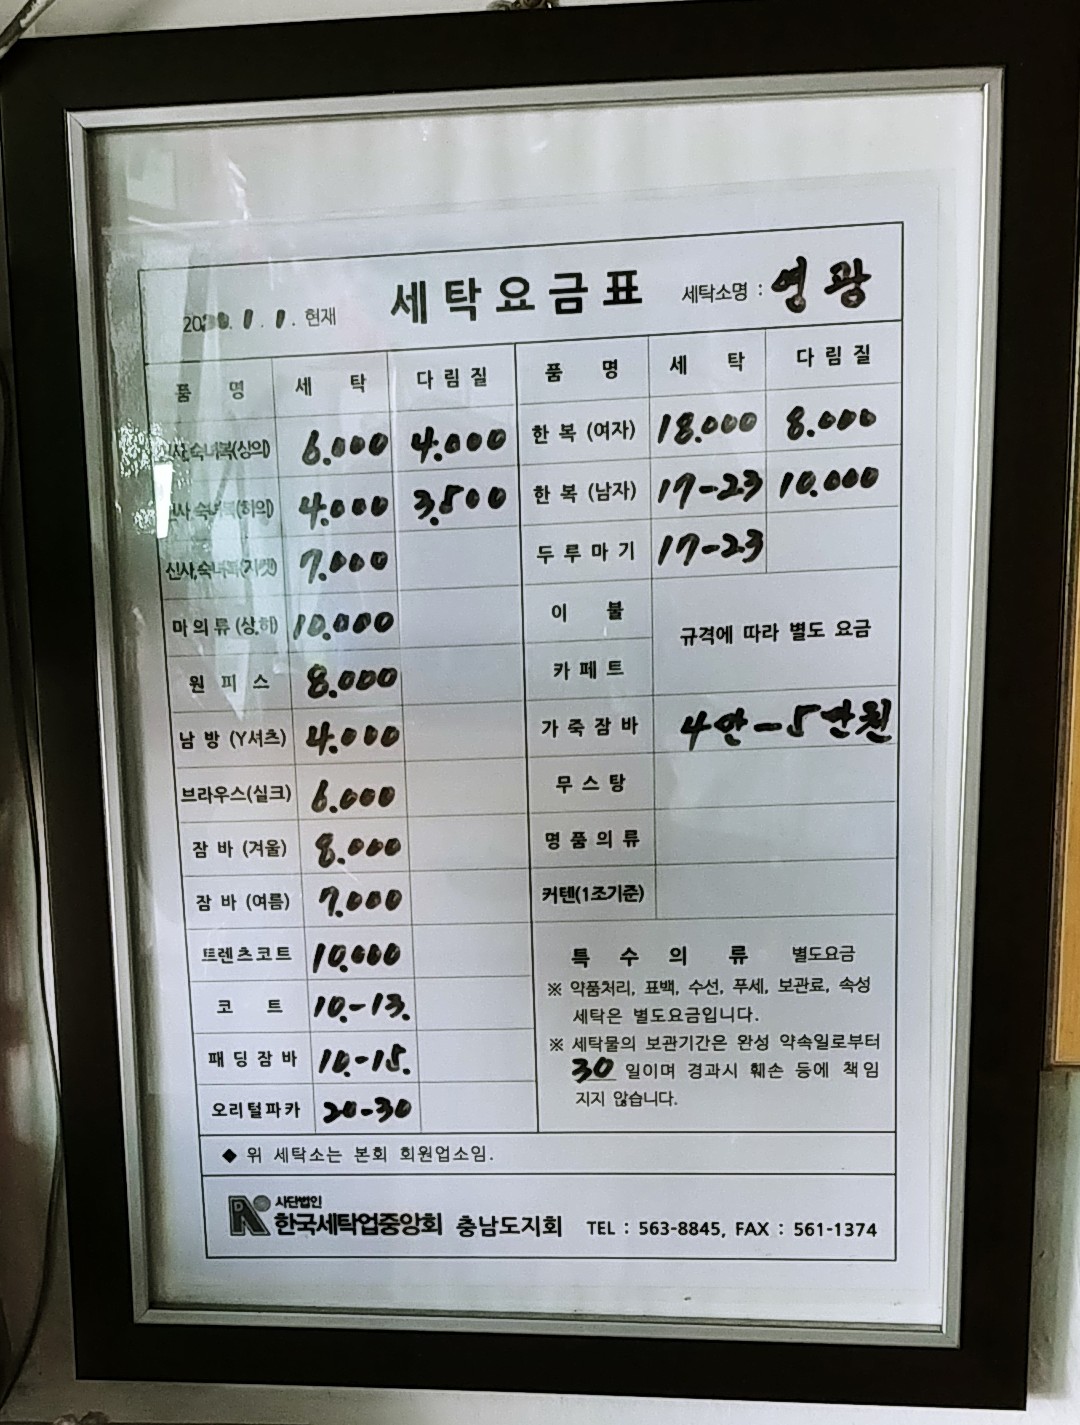 세탁요금표
1. 1. 현재
세탁소명 : 영광
품 명 세 탁 다림질
신사,숙녀복(상의) 6.000 4.000
신사,숙녀복(하의) 4.000 3.500
신사,숙녀복(자켓) 7.000
마의류(상,하) 10.000
원피스 8.000
남방(Y셔츠) 4.000
브라우스(실크) 6.000
잠바(겨울) 8.000
잠바(여름) 7.000
트렌츠코트 10.000
코 트 10.-13.
패딩잠바 10.-15.
오리털파카 20-30
품 명 세 탁 다림질
한복(여자) 18.000 8.000
한복(남자) 17-23 10.000
두루마기 17-23
이 불
카페트
규격에 따라 별도 요금
가죽잠바 4만-5만원
무스탕
명품의류
커텐(1조기준)
특 수 의 류 별도요금
※ 약품처리, 표백, 수선, 푸세, 보관료, 속성
세탁은 별도요금입니다.
※ 세탁물의 보관기간은 완성 약속일로부터
30 일이며 경과시 훼손 등에 책임
지지 않습니다.
◆ 위 세탁소는 본회 회원업소임.
사단법인
한국세탁업중앙회 충남도지회 TEL : 563-8845, FAX : 561-1374